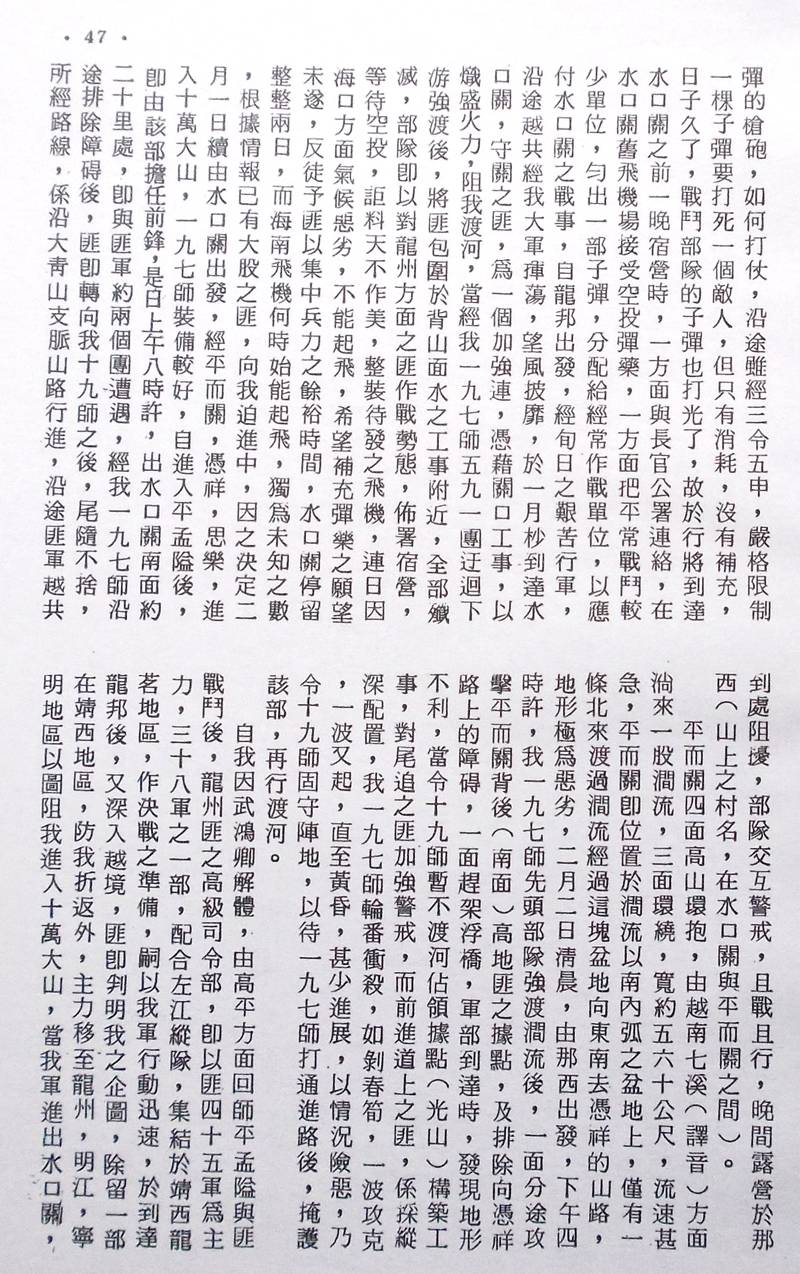 • 47 •
彈的槍砲，如何打仗，沿途雖經三令五申，嚴格限制
一棵子彈要打死一個敵人，但只有消耗，沒有補充，
日子久了，戰鬥部隊的子彈也打光了，故於行將到達
水口關之前一晚宿營時，一方面與長官公署連絡，在
水口關舊飛機場接受空投彈藥，一方面把平常戰鬥較
少單位，勻出一部子彈，分配給經常作戰單位，以應
付水口關之戰事，自龍邦出發，經旬日之艱苦行軍，
沿途越共經我大軍揮蕩，望風披靡，於一月杪到達水
口關，守關之匪，爲一個加強連，憑藉關口工事，以
熾盛火力，阻我渡河，當經我一九七師五九一團迂迴下
游強渡後，將匪包圍於背山面水之工事附近，全部殲
滅，部隊卽以對龍州方面之匪作戰勢態，佈署宿營，
等待空投，詎料天不作美，整裝待發之飛機，連日因
海口方面氣候惡劣，不能起飛，希望補充彈樂之願望
未遂，反徒予匪以集中兵力之餘裕時間，水口關停留
整整兩日，而海南飛機何時始能起飛，獨爲未知之數
，根據情報已有大股之匪，向我迫進中，因之決定二
月一日續由水口關出發，經平而關，憑祥，思樂，進
入十萬大山，一九七師裝備較好，自進入平孟隘後，
卽由該部擔任前鋒，是日上午八時許，出水口關南面約
二十里處，卽與匪軍約兩個團遭遇，經我一九七師沿
途排除障碍後，匪卽轉向我十九師之後，尾隨不捨，
所經路線，係沿大靑山支脈山路行進，沿途匪軍越共
到處阻擾，部隊交互警戒，且戰且行，晚間露營於那
西（山上之村名，在水口關與平而關之間）。
平而關四面高山環抱，由越南七溪（譯音）方面
淌來一股澗流，三面環繞，寬約五六十公尺，流速甚
急，平而關卽位置於澗流以南內弧之盆地上，僅有一
條北來渡過澗流經過這塊盆地向東南去憑祥的山路，
地形極爲惡劣，二月二日清晨，由那西出發，下午四
時許，我一九七師先頭部隊強渡澗流後，一面分途攻
擊平而關背後（南面）高地匪之據點，及排除向憑祥
路上的障碍，一面趕架浮橋，軍部到達時，發現地形
不利，當令十九師暫不渡河佔領據點（光山）構築工
事，對尾追之匪加強警戒，而前進道上之匪，係採縱
深配置，我一九七師輪番衝殺，如剝春筍，一波攻克
，一波又起，直至黃昏，甚少進展，以情況險惡，乃
令十九師固守陣地，以待一九七師打通進路後，掩護
該部，再行渡河。
自我因武鴻卿解體，由高平方面回師平孟隘與匪
戰鬥後，龍州匪之高級司令部，卽以匪四十五軍爲主
力，三十八軍之一部，配合左江縱隊，集結於靖西龍
茗地區，作決戰之準備，嗣以我軍行動迅速，於到達
龍邦後，又深入越境，匪卽判明我之企圖，除留一部
在靖西地區，防我折返外，主力移至龍州，明江，寧
明地區以圖阻我進入十萬大山，當我軍進出水口關，